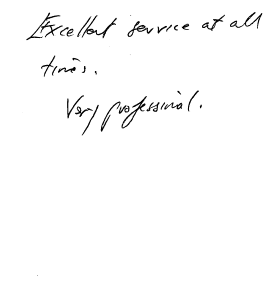 Excellent service at all
times.
Very professional.